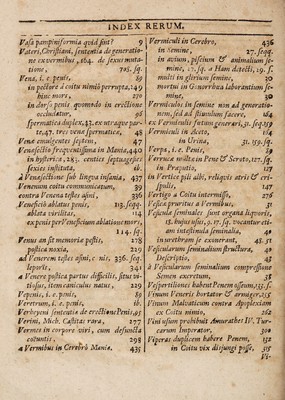 INDEX RERUM.
Vasa pampiniformia quid sint? 9
Vateri, Christiani, sententia de generatione
ex vermibus, 164. de sexus mutatione,
705. sq.
Vena, i. e. penis, 89
in pectore à coitu nimiò perrupta, 149
hinc mors 270
in dorso penis quomodo in erectione
occludatur, 96
Spermatica duplex, 43. ex utraque parte,
47. tres vena spermatica, 48
Vena emulgentes septem, 47
Venasectio frequentissima in Mania, 440
in hysterica, 285. centies septuagies
sexies instituta, ib.
à Venasectione sub lingua insania, 437
Venenum coitu communicatum, 89
contra Venena testes asini, 336
Veneficiò ablatus penis, 113. seqq.
ablata virilitas, 114
ex penis per Veneficium ablatione mors,
114. sq.
Venus an sit memoria pestis, 278
pestis noxia, 229
ad Venerem testes asini, 336. seq.
leporis, 341
a Venere postica partus difficilis, ficus vitiosus,
item caniculus natus, 229
Vepenis, i. e. penis, 89
Veretrum, i. e. penis, ib.
Verheyeni sententia de erectione Penis, 95
Verini, Mich. Castitas rara, 277
Vermes in corpore viri, cum defuncta
coeuntis, 298
a Vermibus in Cerebro Mania, 435
Vermiculi in Cerebro, 436
in Semine, 27. seqq.
in avium, piscium & animalium semine,
28. sq. a Ham detecti, 29. s.
multi in glirium semine, 30
mortui in Gonorrhœa laborantium semine,
30
Vermiculos in semine non ad generationem,
sed ad stimulum facere, 164
ex Vermiculis futuri generari, 31. seq. 159
Vermiculi in Aceto, 164
in Urina, 31. 159. sq.
Verpa, i. e. Penis, 89
Verruca molles in Pene & Scroto, 127. sq.
in Praputio, 127
in Vertice pili albi, reliquis atris & crispulis,
147
Vertigo a Coitu intermisso, 276
Vesica pruritus a Vermibus, 31
Vesicula seminales sunt organa liquoris,
18. hujus usus, 9. 17. sq. vocantur etiam
intestinula seminalia, 40
in vetribram se exonerant, 48. 51
Vesicularum seminalium structura, 48
Descriptio, 45
à Vesicularum seminalium compressione
semen excretum, 58
Vespertiliones habent Penem osseum, 135. s.
Vinum Veneris hortator & armiger, 255
Vinum Malvaticum contra Apoplexiam
ex Coitu nimio, 262
Vini usum prohibuit Amurathes IV. Turcarum
Imperator, 300
Viperas duplicem habere Penem, 132
in Coitu vix disjungi posse, 518
Vi-